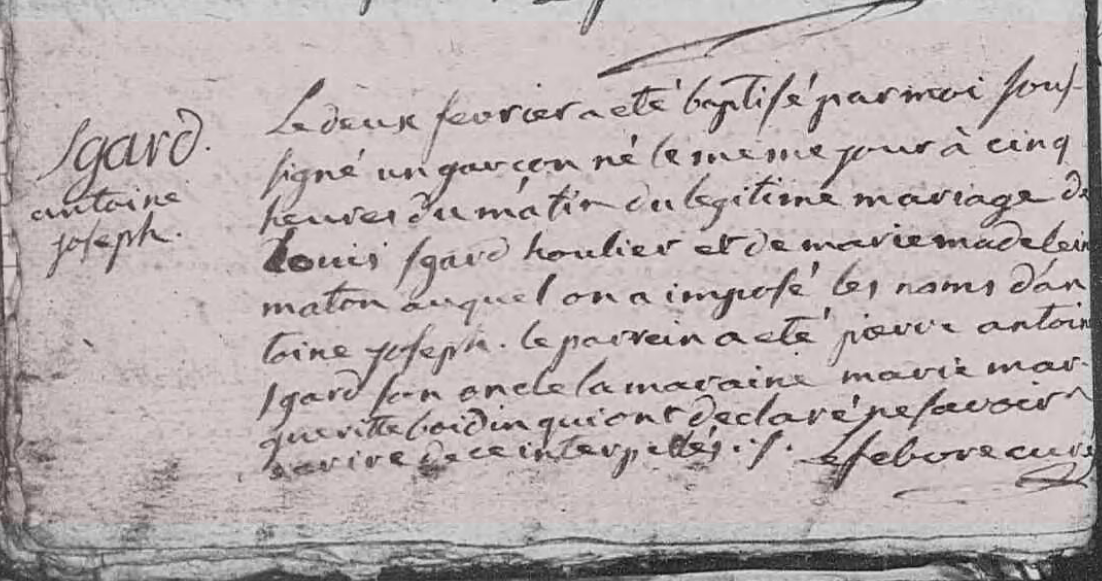 Sgard.
antoine
joseph.
Le deux fevrier a eté baptisé par moi sous-
signé un garçon né le meme jour à cinq
heures du matin du legitime mariage de
Louis Sgard houlier et de marie madelein
maton auquel on a imposé les noms d'an
toine joseph. le parrein a eté pierre antoin
Sgard son oncle la maraine marie mar-
queritte boidin qui ont declaré ne savoir
ecrire de ce interpellés .
Lefebvre curé